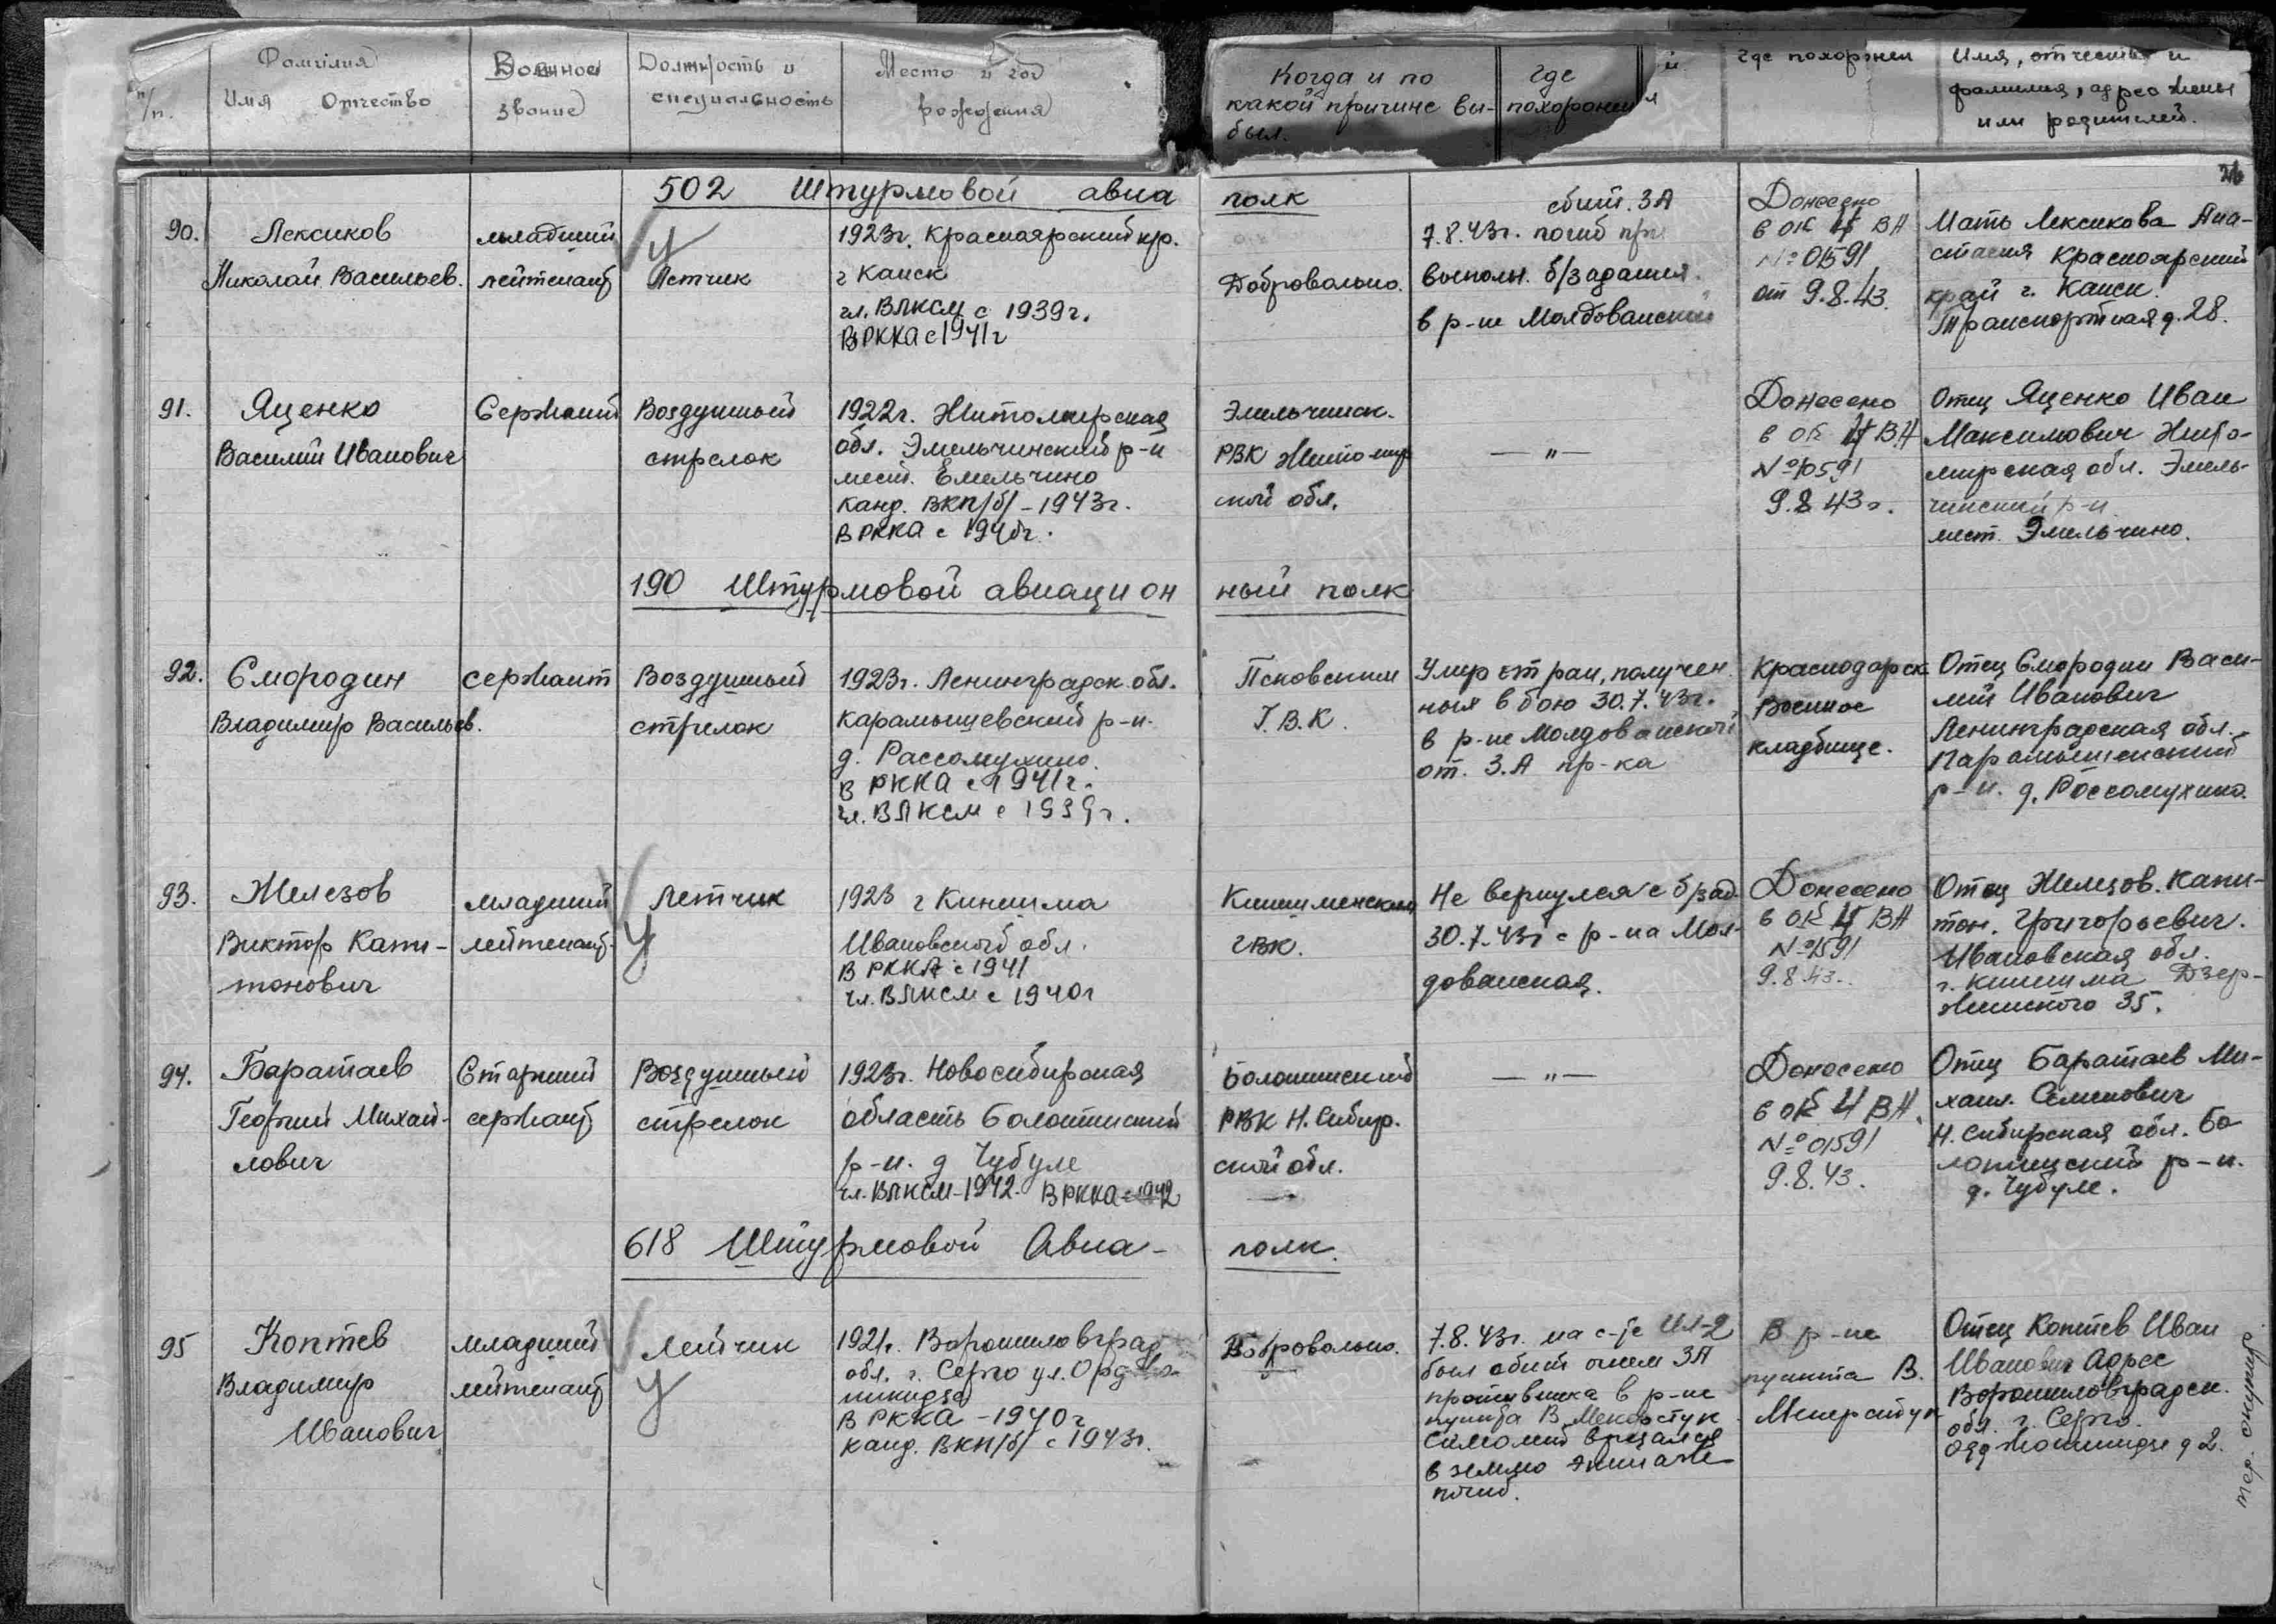 п/п.
Фамилия
Имя Отчество
Военное
звание
Должность и
специальность
Место и год
рождения
Когда и по
какой причине вы-
был.
где
похоронен
где похоронен
Имя, отчество и
фамилия, адрес жены
или родителей.
26
502 Штурмовой авиа полк
90.
Лексиков
Николай Васильев.
младший
лейтенант
Летчик
1923г. Красноярский кр.
г Канск
чл. ВЛКСМ с 1939г.
В РККА с 1941г
Добровольно.
сбит. ЗА
7.8.43г. погиб при
выполн. б/задания.
в р-не Молдованский
Донесено
в ОК 4 ВА
№ 01591
от 9.8.43.
Мать Лексикова Ана-
стасия Красноярский
край г. Канск.
Транспортная д. 28.
91.
Яценко
Василий Иванович
Сержант
Воздушный
стрелок
1922г. Житомирская
обл. Эмельчинский р-н
мест. Емельчино
Канд. ВКП/б/ - 1943г.
В РККА с 1940г.
Эмельчинск.
РВК Житомир
ской обл.
— " —
Донесено
в ОК 4 ВА
№ 10591
9.8.43г.
Отец Яценко Иван
Максимович Жито-
мирская обл. Эмель-
чинский р-н
мест. Эмельчино.
190 Штурмовой авиацион ный полк
92.
Смородин
Владимир Васильев.
сержант
Воздушный
стрелок
1923г. Ленинградск. обл.
Карамышевский р-н.
д. Рассомухино.
В РККА с 1941г.
чл. ВЛКСМ с 1939г.
Псковским
Г.В.К.
Умер от ран, получен
ных в бою 30.7.43г.
в р-не Молдованской
от. З.А пр-ка
Краснодарск
Военное
кладбище.
Отец Смородин Васи-
лий Иванович
Ленинградская обл.
Карамышевский
р-н. д. Россомухино.
93.
Железов
Виктор Капи-
тонович
младший
лейтенант
Летчик
1923 г Кинешма
Ивановской обл.
В РККА с 1941
чл. ВЛКСМ с 1940г
Кинешменским
ГВК.
Не вернулся с б/зад.
30.7.43г с р-на Мол-
дованская.
Донесено
в ОК 4 ВА
№ 1591
9.8.43.
Отец Железов. Капи-
тон. Григорьевич.
Ивановская обл.
г. Кинешма Дзер-
жинского 35.
94.
Баратаев
Георгий Михай-
лович
Старший
сержант
Воздушный
стрелок
1923г. Новосибирская
область Болотнинский
р-н. д Чубуле
чл. ВЛКСМ-1942. В РККА с 1942
Болотнинский
РВК Н. Сибир.
ской обл.
— " —
Донесено
в ОК 4 ВА
№ 01591
9.8.43.
Отец Баратаев Ми-
хаил. Семенович
Н. Сибирская обл. Бо
лотнинский р-н.
д. Чубуле.
618 Штурмовой Авиа- полк.
95
Коптев
Владимир
Иванович
младший
лейтенант
Летчик
1921г. Ворошиловград
обл. г. Серго ул. Орджо-
никидзе
В РККА - 1940г
канд. ВКП/б/ с 1943г.
Добровольно.
7.8.43г. на с-те Ил-2
был сбит огнем ЗА
противника в р-не
пункта В. Мекерстук
Самолет врезался
в землю экипаж
погиб.
В р-не
пункта В.
Мекерстук
Отец Коптев Иван
Иванович Адрес
Ворошиловградск.
обл. г. Серго.
Орджоникидзе д 2.